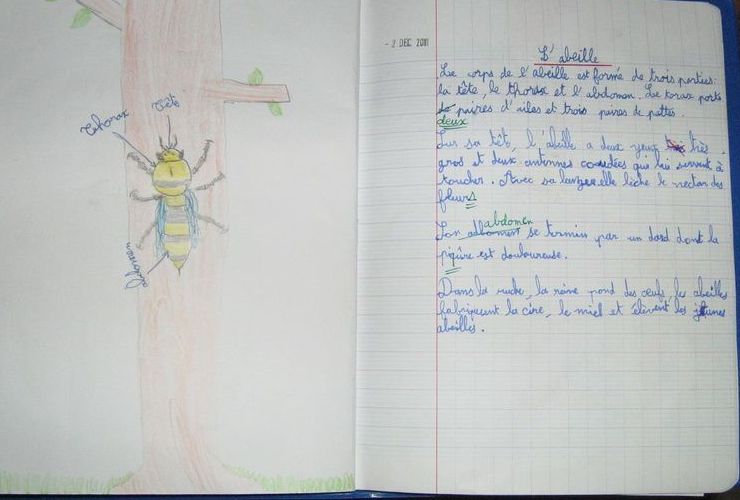 Thorax
Têt
abdomen
- 2 DEC 2011
L'abeille
Le corps de l'abeille est formé de trois parties:
la tête, le thorax et l'abdomen. Le torax porte
de paires d'ailes et trois paires de pattes.
deux
Sur sa têt, l'abeille a deux yeux très
gros et deux antennes coudées qui lui servent à
toucher. Avec sa langue, elle lèche le nectar des
fleurs
abdomen
Son se termin par un dard dont la
piqûre est douloureuse.
Dans la ruche, la reine pond des œufs, les abeilles
fabriquent la cire, le miel et élèvent les jeunes
abeilles.